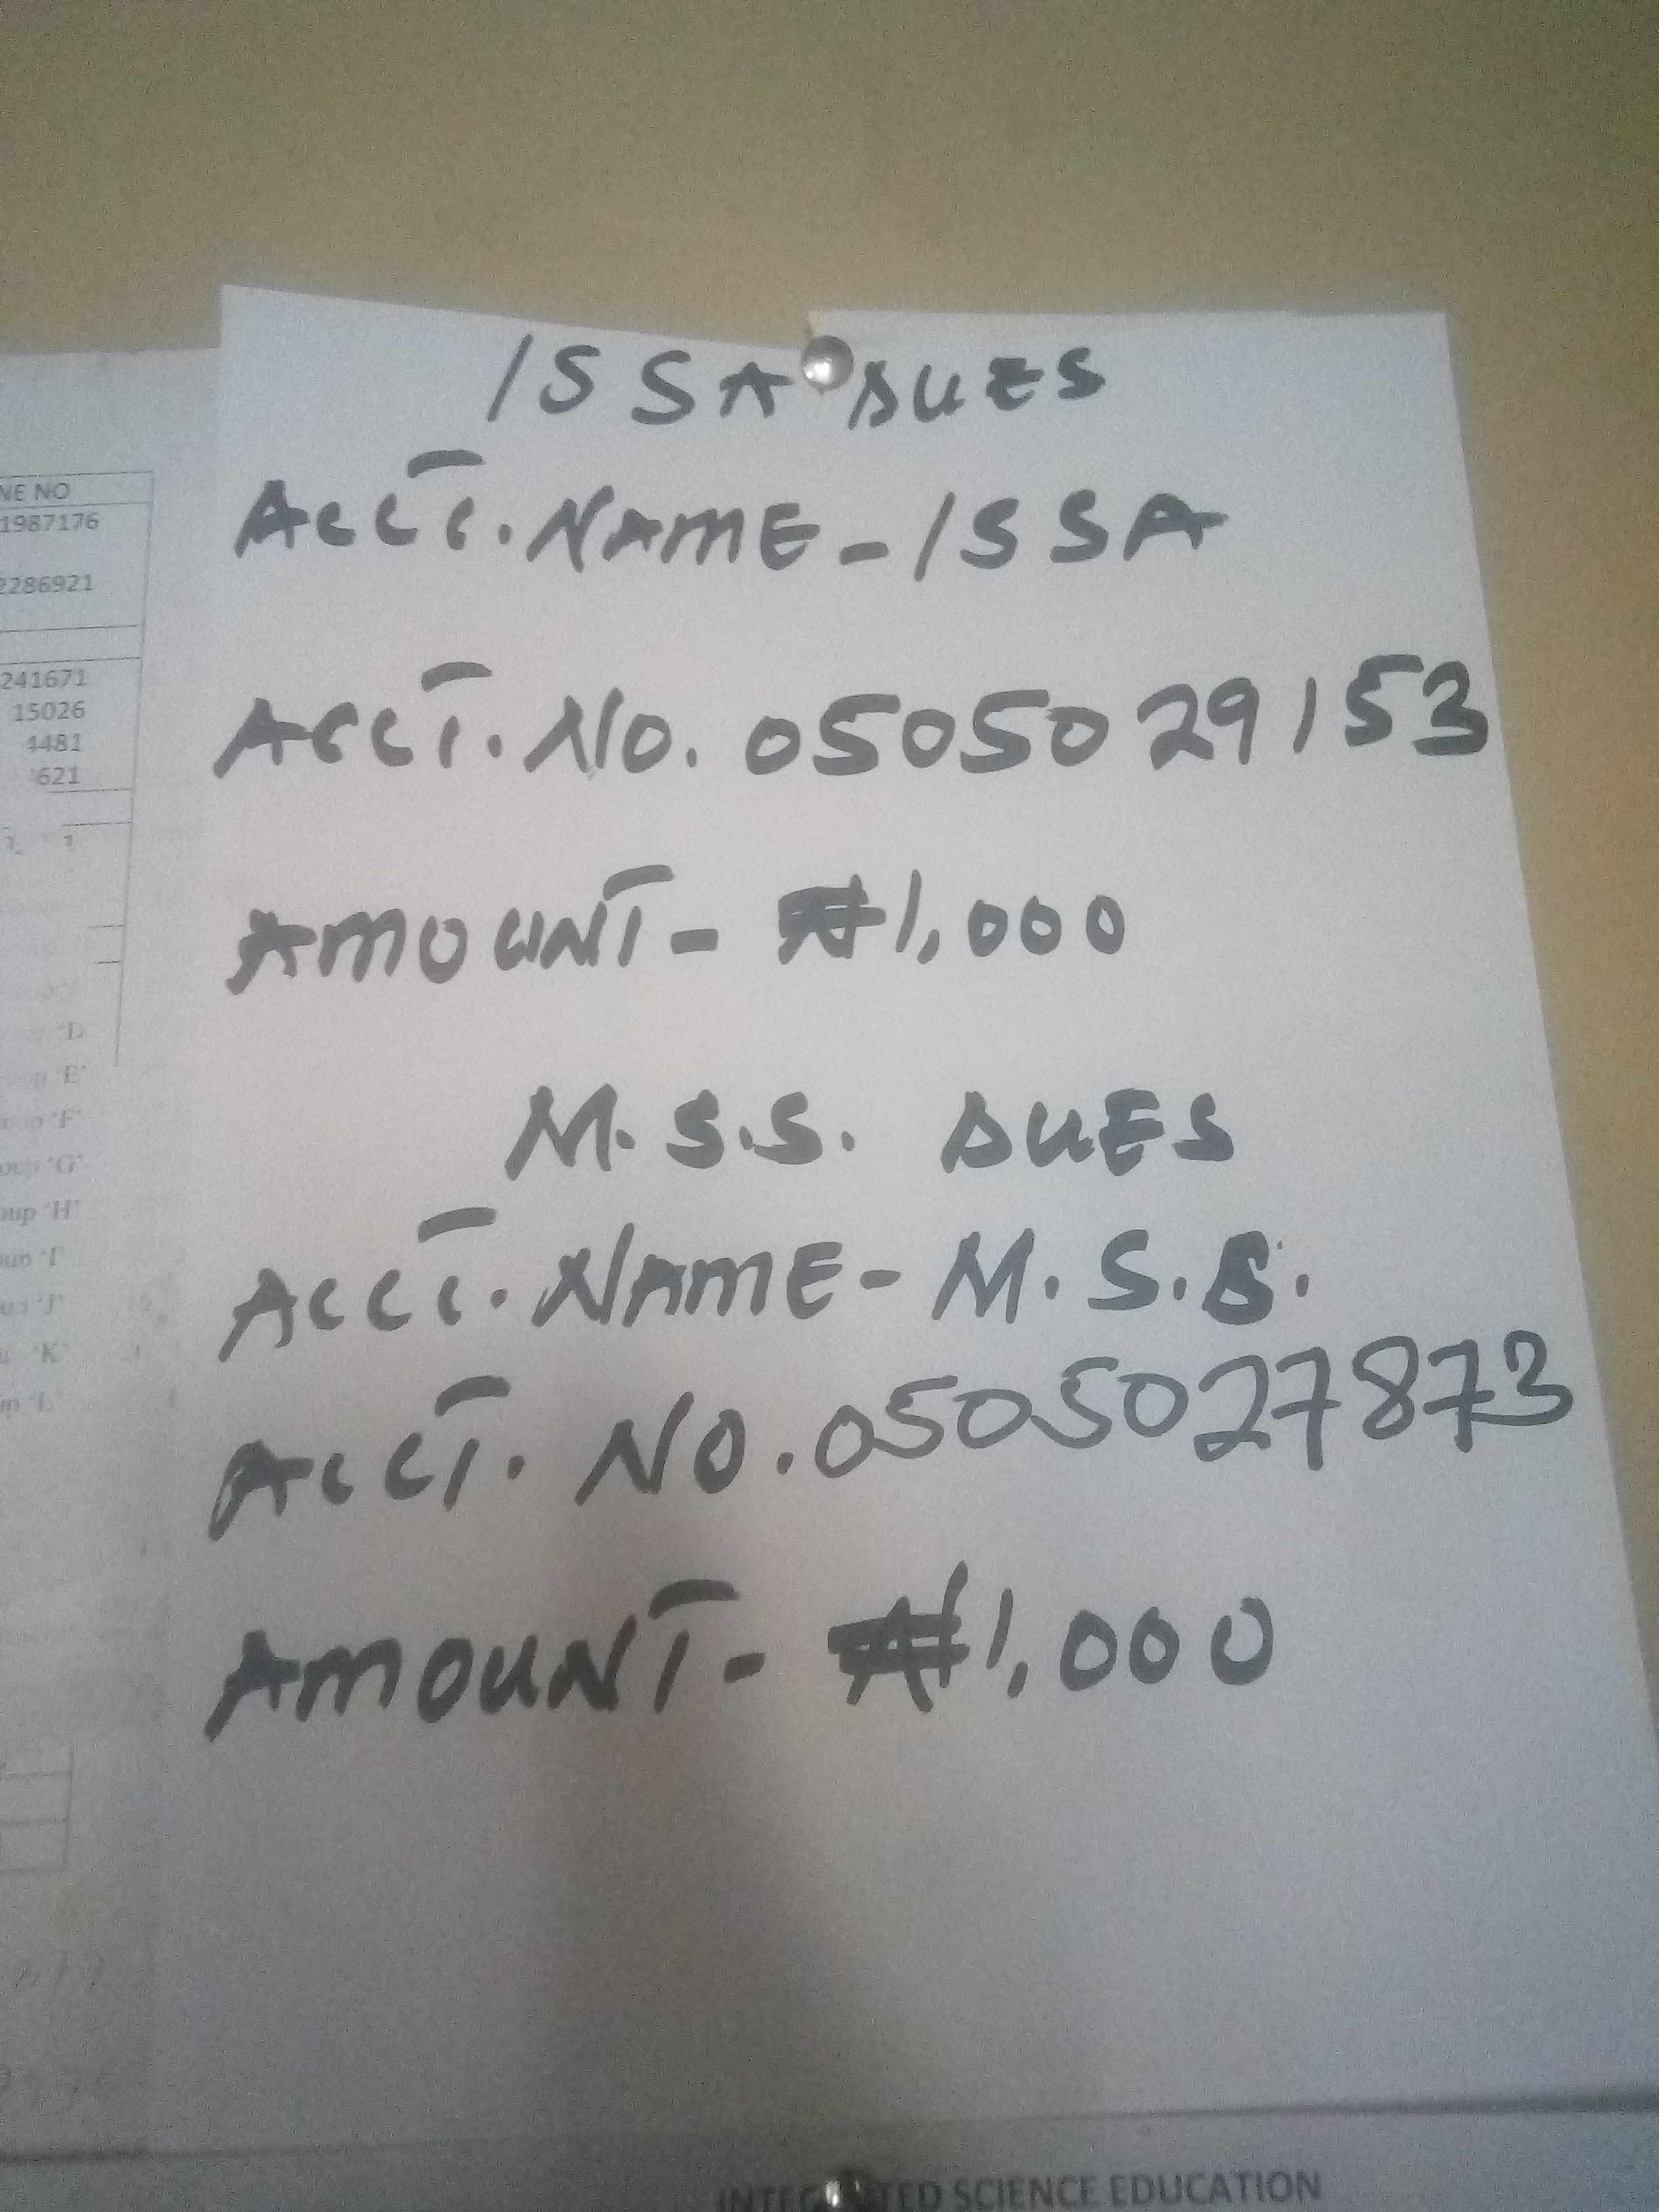 ISSA DUES
ACCT. NAME - ISSA
ACCT. NO. 0505029153
AMOUNT - ₦1,000
M.S.S. DUES
ACCT. NAME - M.S.S.
ACCT. NO. 0505027873
AMOUNT - ₦1,000
NE NO
1987176
2286921
241671
15026
4481
621
'E'
'F'
'G'
oup 'H'
'K'
SCIENCE EDUCATION